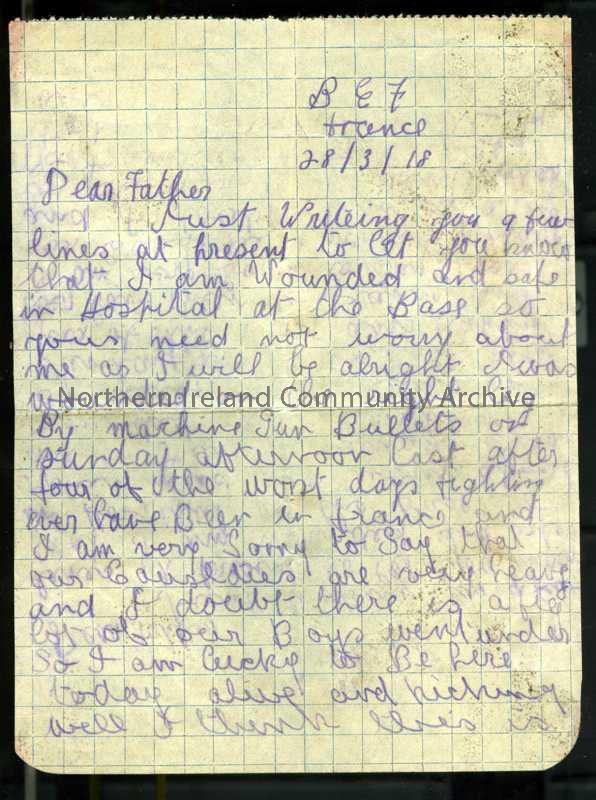 B E F
France
28/3/18
Dear Father
Just Writeing you a few
lines at present to let you know
that I am Wounded and safe
in Hospital at the Base so
yous need not worry about
me as I will be alright I was
wounded in the right
Northern Ireland Community Archive
By machine Gun Bullets on
sunday afternoon last after
four of the worst days fighting
ever have Been in France and
I am very Sorry to Say that
our are very heavy
and I doubt there is a
lot of our Boys went under
So I am lucky to Be here
today alive and kicking
well I think this is